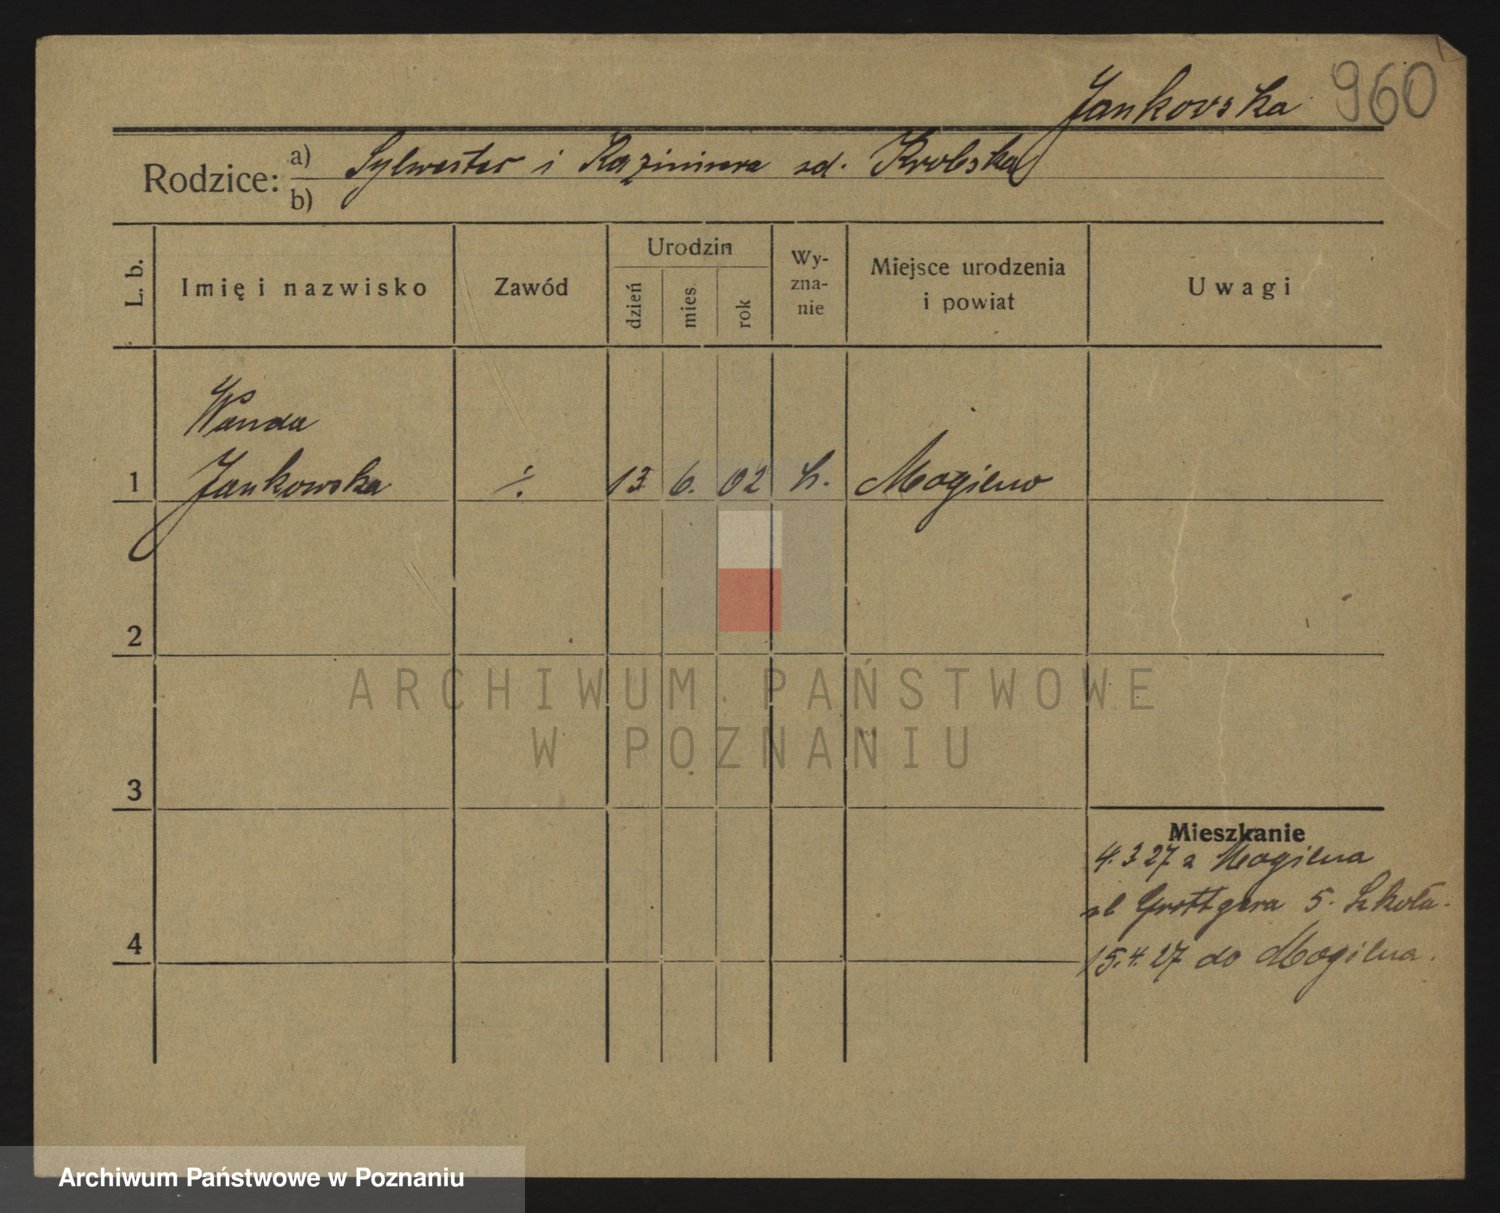 Jankovska 960
Rodzice: a) Sylwester i Kazimiera zd. Krobska
b)
L. b. Imię i nazwisko Zawód Urodzin dzień mies. rok Wy-zna-nie Miejsce urodzenia i powiat Uwagi
Wanda
1 Jankowska ·/. 13 6. 02 k. Mogilno
2
ARCHIWUM PAŃSTWOWE
W POZNANIU
3
Mieszkanie
4. 3 27 z Mogilna
ul Grottgera 5. Szkoła.
4
15.4.27 do Mogilna.
Archiwum Państwowe w Poznaniu